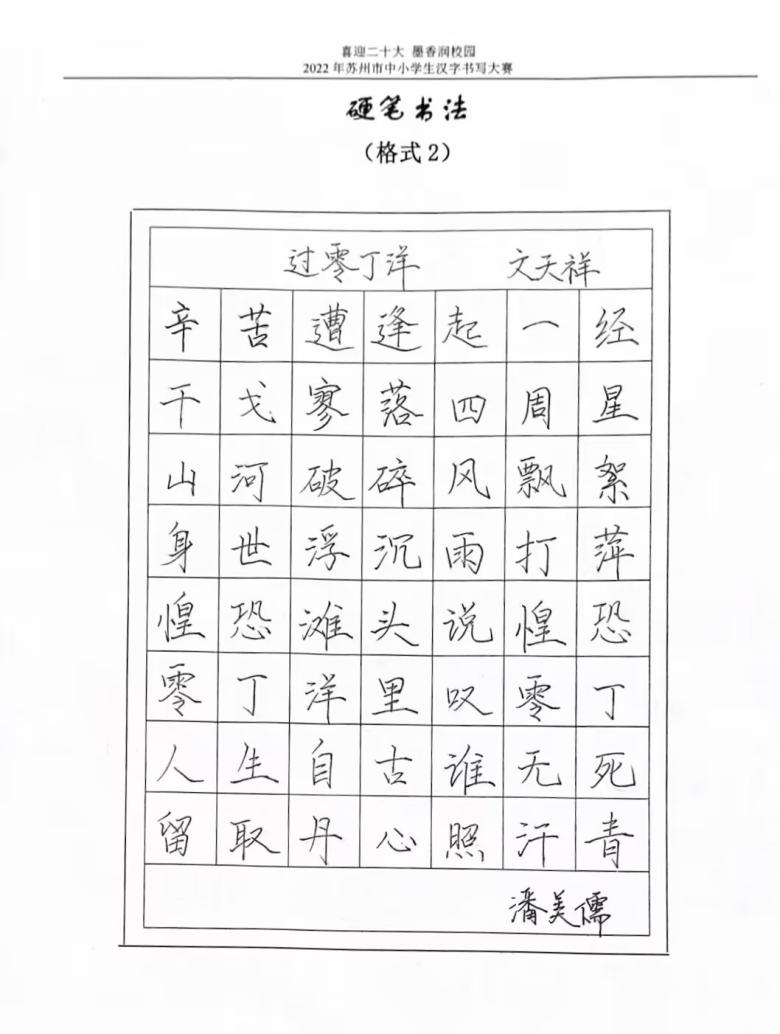 喜迎二十大 墨香润校园
2022年苏州市中小学生汉字书写大赛
硬笔书法
（格式2）
过零丁洋 文天祥
辛苦遭逢起一经
干戈寥落四周星
山河破碎风飘絮
身世浮沉雨打萍
惶恐滩头说惶恐
零丁洋里叹零丁
人生自古谁无死
留取丹心照汗青
潘美儒